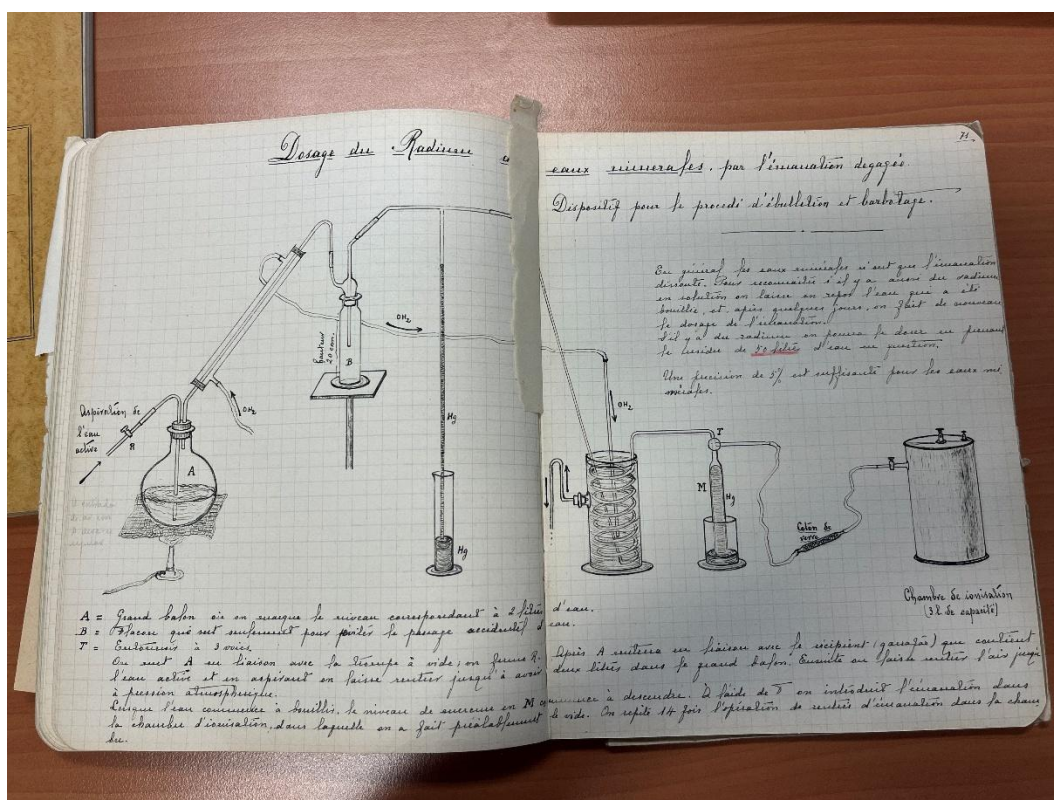 71.
Dosage du Radium
eaux minerales. par l'émanation dégagée.
Dispositif pour le procédé d'ébullition et barbotage.
En général les eaux minérales n'ont que l'émanation
dissoute. Pour reconnaitre s'il y a aussi du radium
en solution on laisse en repos l'eau qui a été
bouillie, et, après quelques jours, on fait de nouveau
le dosage de l'émanation.
S'il y a du radium on pourra le doser en prenant
le residu de 50 litres d'eau en question.
Une precision de 5% est suffisante pour les eaux mi
nérales.
OH2
hauteur
20 cm.
B
OH2
Aspiration de
l'eau
active
R
A
Hg
Hg
OH2
T
M
Hg
Coton de
verre
Chambre de ionisation
(3 l. de capacité)
A = Grand balon où on marque le niveau correspondant à 2 litres d'eau.
B = Flacon qui sert seulement pour éviter le passage accidentel d'eau.
T = Entonnoir à 3 voies.
On met A en liaison avec la trompe à vide; on ferme R. Après A mettra en liaison avec le récipient (garrafão) que contient
l'eau active et en aspirant on laisse rentrer jusqu'à avoir deux litres dans le grand balon. Ensuite on laisse rentrer l'air jusqu'
à pression atmospherique.
Lorsque l'eau commence à bouillir, le niveau de mercure en M commence à descendre. À l'aide de T on introduit l'émanation dans
la chambre d'ionisation, dans laquelle on a fait préalablement le vide. On repite 14 fois l'opération de rentrée d'émanation dans la cham
bre.